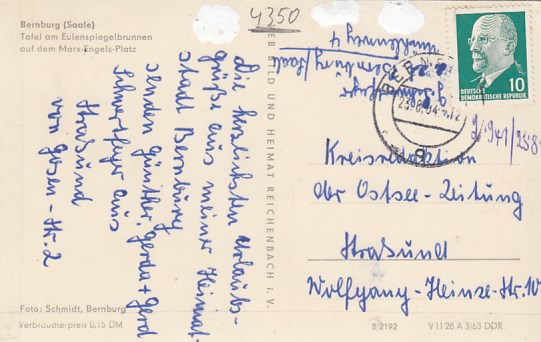 Bernburg (Saale)
Tafel am Eulenspiegelbrunnen
auf dem Marx-Engels-Platz
4350
Die herzlichsten Urlaubs-
grüße aus meiner Heimat-
stadt Bernburg
senden Günther, Gerda + Gerd
Schwertfeger aus
Stralsund
von Gosen-Str. 2
Foto: Schmidt, Bernburg
Verbraucherpreis 0,15 DM
BILD UND HEIMAT REICHENBACH I. V.
Bernburg/Saale
DEUTSCHE
DEMOKRATISCHE REPUBLIK
10
Kreisredaktion
der Ostsee-Zeitung
Stralsund
Wolfgang-Heinze-Str. 10
8/2192
V 11 28 A 3/63 DDR